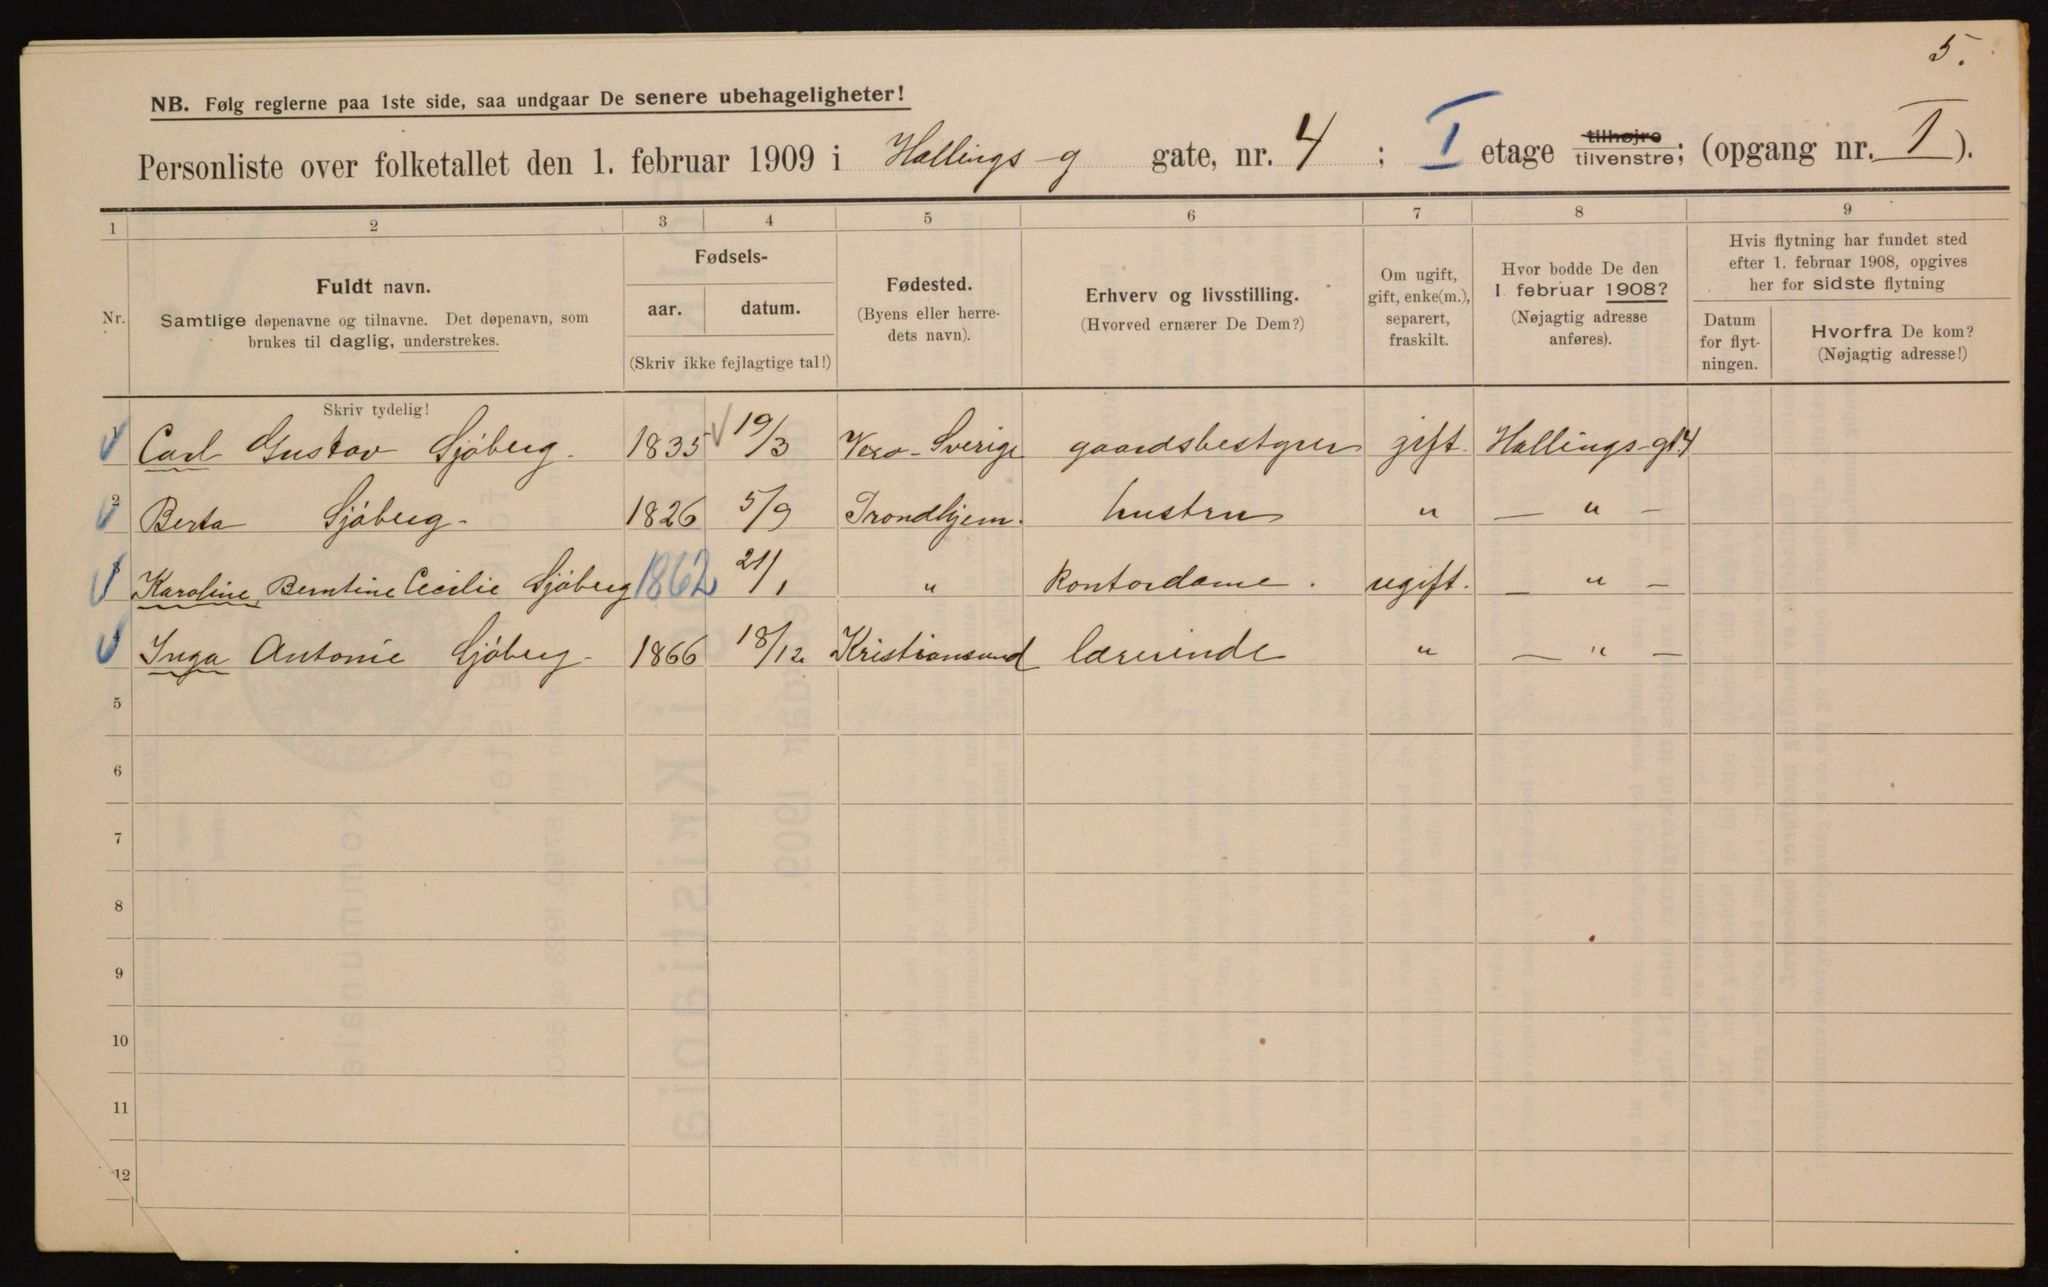 5.
NB. Følg reglerne paa 1ste side, saa undgaar De senere ubehageligheter!
Personliste over folketallet den 1. februar 1909 i Hallings-g gate, nr. 4 ; I etage tilhøjre tilvenstre; (opgang nr. I).
1 2 3 4 5 6 7 8 9
Nr.
Fuldt navn.
Samtlige døpenavne og tilnavne. Det døpenavn, som
brukes til daglig, understrekes.
Skriv tydelig!
Fødsels-
aar. datum.
(Skriv ikke fejlagtige tal!)
Fødested.
(Byens eller herre-
dets navn).
Erhverv og livsstilling.
(Hvorved ernærer De Dem?)
Om ugift,
gift, enke(m.),
separert,
fraskilt.
Hvor bodde De den
1 februar 1908?
(Nøjagtig adresse
anføres).
Hvis flytning har fundet sted
efter 1. februar 1908, opgives
her for sidste flytning
Datum
for flyt-
ningen.
Hvorfra De kom?
(Nøjagtig adresse!)
1 Carl Gustav Sjöberg. 1835 19/3 Sverige gaardsbestyrer gift. Hallings-gt 4
2 Berta Sjöberg- 1826 5/9 Trondhjem. hustru " — " —
3 Karoline Berntine Cecilie Sjöberg 1862 21/1 " kontordame. ugift. — " —
4 Inga Antonie Sjöberg- 1866 18/12 Kristiansund lærerinde " — " —
5
6
7
8
9
10
11
12